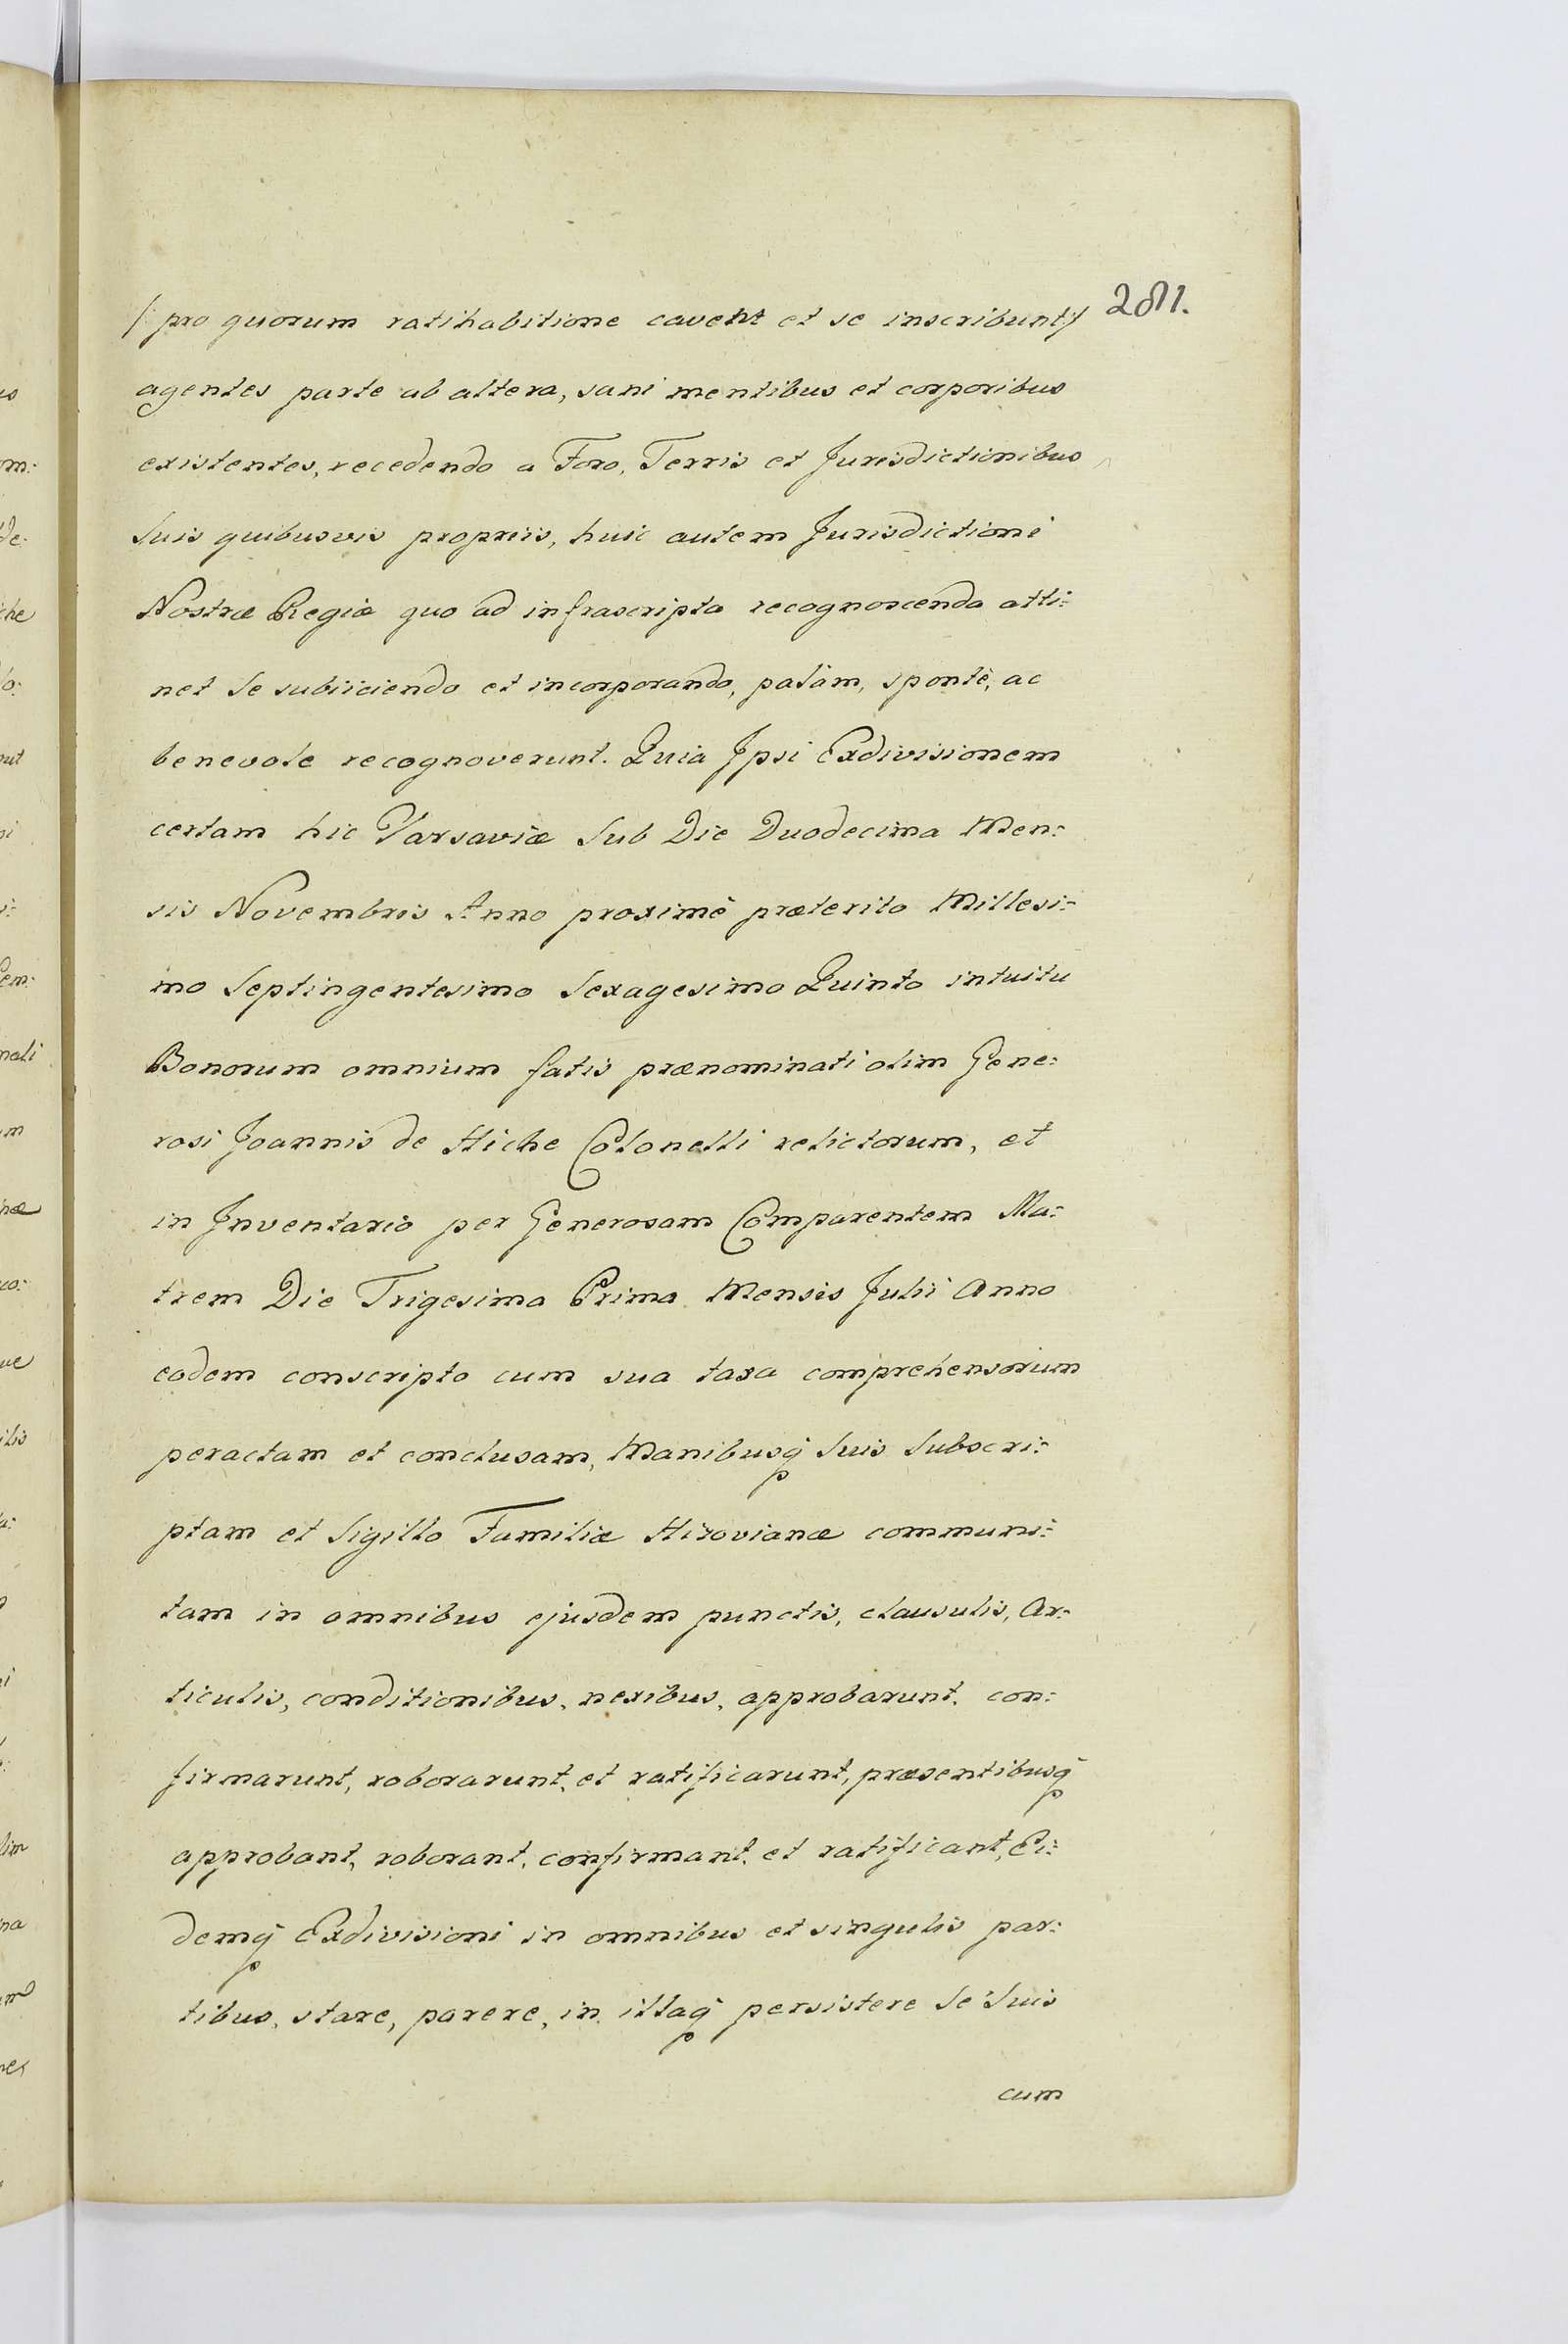 281.
/: pro quorum ratihabitione cavent et se inscribunt :/
agentes parte ab altera, sani mentibus et corporibus
existentes, recedendo a Foro, Terris et Jurisdictionibus
Suis quibusvis propriis, huic autem Jurisdictioni
Nostræ Regiæ quo ad infrascripta recognoscenda atti:
net Se subiiciendo et incorporando, palàm, spontè, ac
benevole recognoverunt. Quia Ipsi Exdivisionem
certam hic Varsaviæ Sub Die Duodecima Men:
sis Novembris Anno proximè præterito Millesi:
mo Septingentesimo Sexagesimo Quinto intuitu
Bonorum omnium fatis prænominati olim Gene:
rosi Joannis de Hiche Colonelli relictorum, et
in Inventario per Generosam Comparentem Ma:
trem Die Trigesima Prima Mensis Julii Anno
eodem conscripto cum sua taxa comprehensorum
peractam et conclusam, Manibusq̃ Suis Subscri:
ptam et Sigillo Familiæ Hizovianæ communi:
tam in omnibus ejusdem punctis, clausulis, Ar:
ticulis, conditionibus, nexibus, approbarunt, con:
firmarunt, roborarunt, et ratificarunt, præsentibusq̃
approbant, roborant, confirmant, et ratificant, Ei:
demq̃ Exdivisioni in omnibus et singulis par:
tibus, stare, parere, in illaq̃ persistere Se Suis
cum